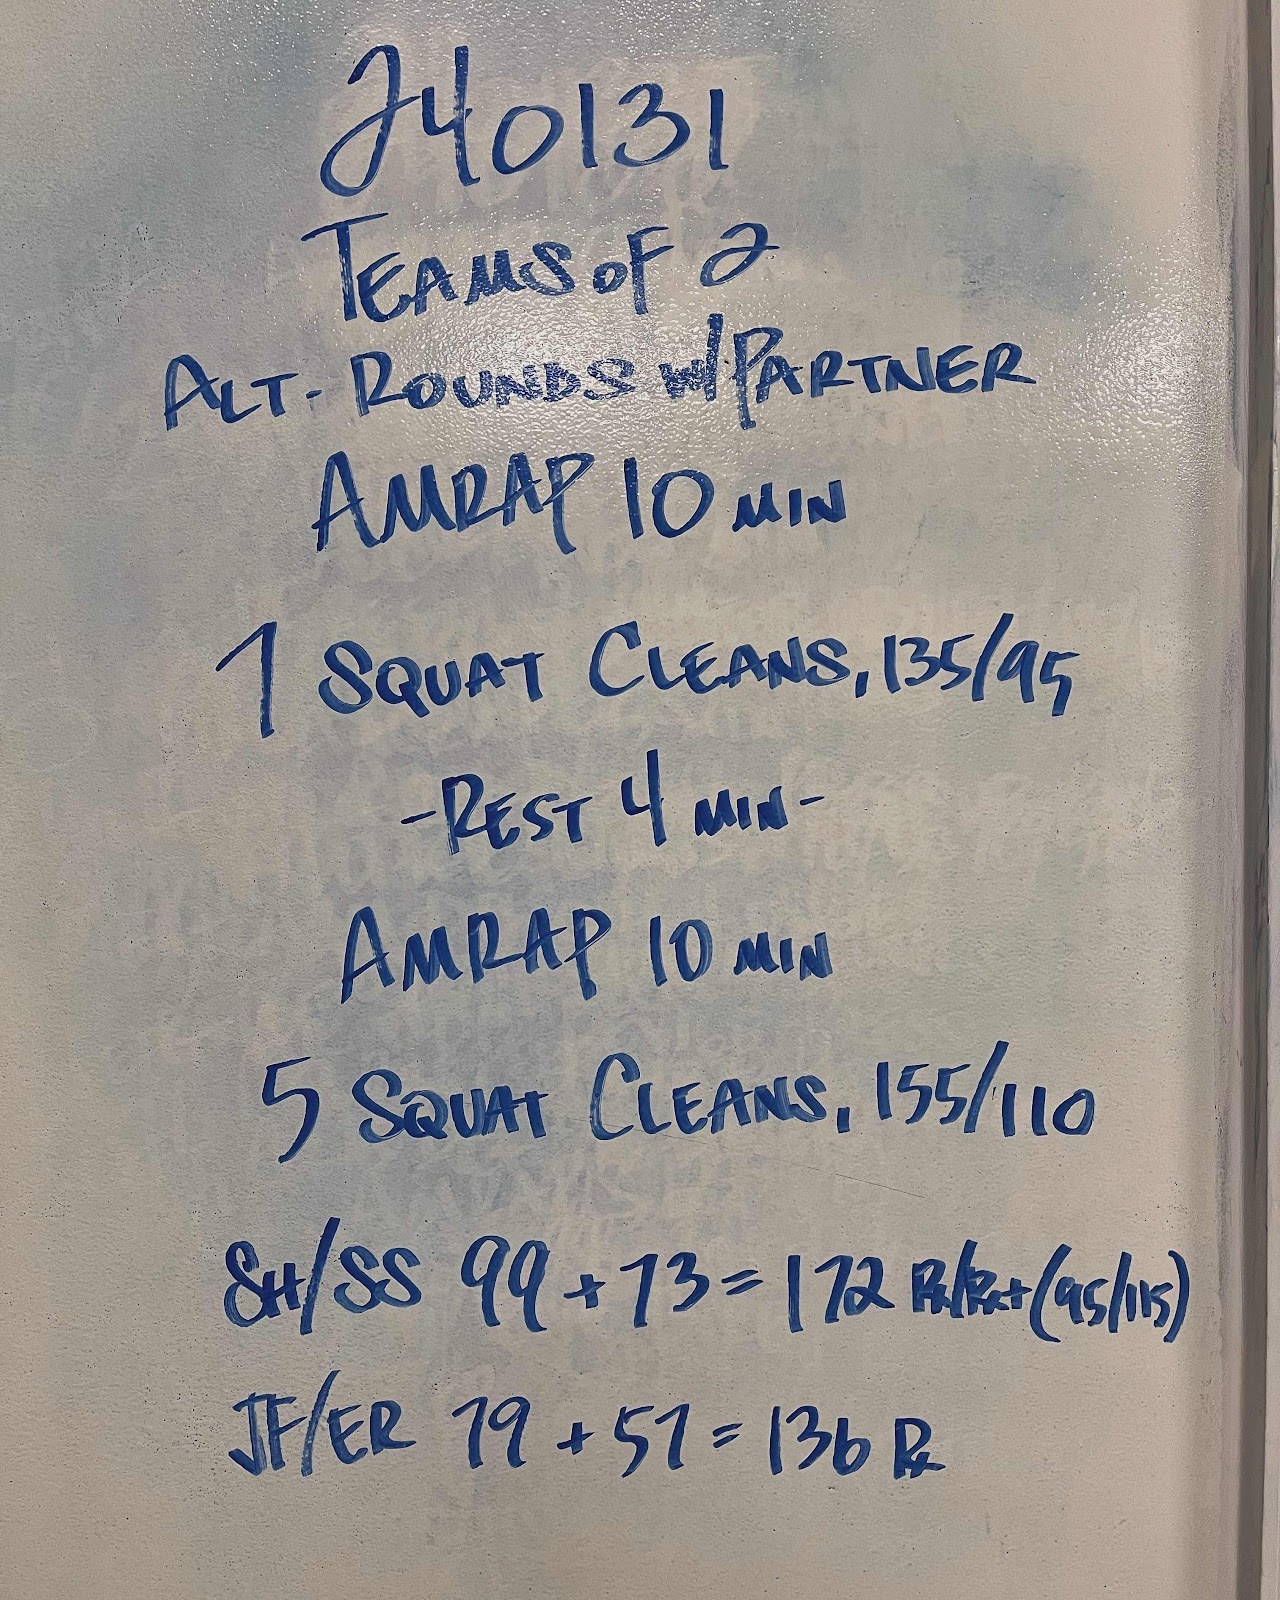 240131
TEAMS OF 2
ALT. ROUNDS W/PARTNER
AMRAP 10 MIN
7 SQUAT CLEANS, 135/95
-REST 4 MIN-
AMRAP 10 MIN
5 SQUAT CLEANS, 155/110
SH/SS 99 + 73 = 172 Rx/Rx+ (95/115)
JF/ER 79 + 57 = 136 Rx